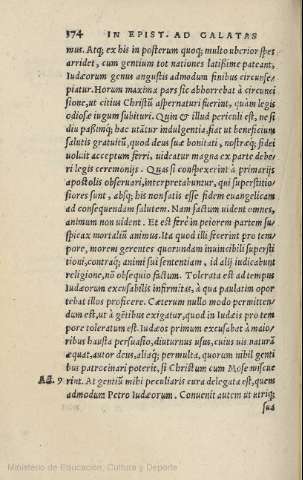 374 IN EPIST. AD GALATAS
mus. Atq; ex his in posterum quoq; multo uberior spes
arridet, cum gentium tot nationes latissime pateant,
Iudæorum genus angustis admodum finibus circunscri
piatur. Horum maxima pars sic abhorrebat à circunci
sione, ut citius Christū aspernaturi fuerint, quàm legis
odiosæ iugum subituri. Quin & illud periculi est, ne si
diu passimq; hac utātur indulgentia, fiat ut beneficium
salutis gratuitū, quod deus suæ bonitati, nostræq; fidei
uoluit acceptum ferri, uideatur magna ex parte debe
ri legis ceremonijs. Quas si conspexerint à primarijs
apostolis obseruari, interpretabuntur, qui superstitio
siores sunt, absq; his non satis esse fidem euangelicam
ad consequendam salutem. Nam factum uident omnes,
animum non uident. Et est ferè in peiorem partem su
spicax mortaliū animus. Ita quod illi fecerint pro tem
pore, morem gerentes quorundam inuincibili supersti
tioni, contraq; animi sui sententiam, id alij iudicabunt
religione, nō obsequio factum. Tolerata est ad tempus
Iudæorum excusabilis infirmitas, à qua paulatim opor
tebat illos proficere. Cæterum nullo modo permitten/
dum est, ut à gētibus exigatur, quod in Iudæis pro tem
pore toleratum est. Iudæos primum excusabat à maio/
ribus hausta persuasio, diuturnus usus, cuius uis naturā
æquat, autor deus, aliaq; permulta, quorum nihil genti
bus patrocinari poterit, si Christum cum Mose miscue
Act. 9 rint. At gentiū mihi peculiaris cura delegata est, quem
admodum Petro Iudæorum. Conuenit autem ut utriq;
sua
Ministerio de Educación, Cultura y Deporte